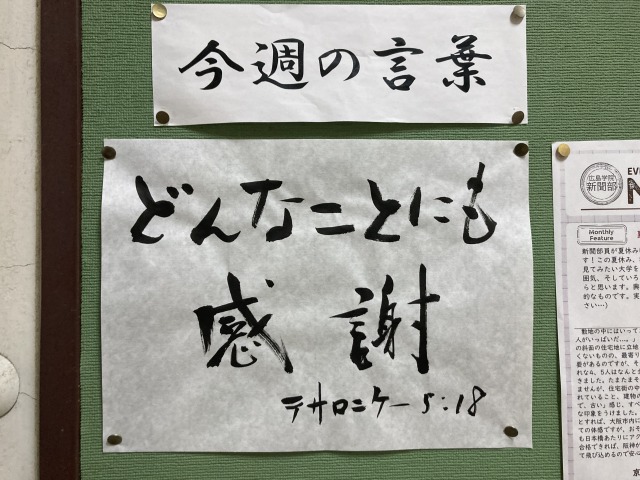 今週の言葉
どんなことにも
感謝
テサロニケー5:18
広島学院
新聞部
EV
N
Monthly
Feature
新聞部員が夏休み
す！この夏休み、
見てみたい大学を
囲気、そしていろ
らと思います。興
的なものです。実
さい…）
敷地の中にはいって
人がいっぱいだ…。」
の斜面の住宅地に立地
くないものの、最寄り
数があるのですが、そ
れな4、5人はなんと
きました。たまたまそ
ませんが、住宅街の中
れていること。建物の
で、古い」感じ、すべ
な印象をうけました。
とすれば、大阪市内に
ての体感ですが、おそ
も日本橋あたりにアク
合格できれば、阪神が
て飛び込めるので安心
京